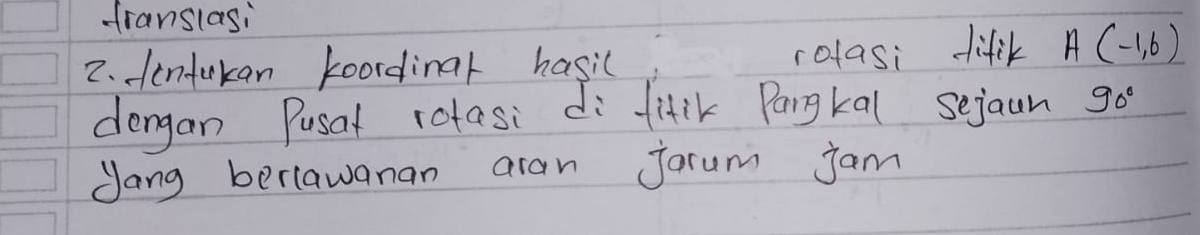 translasi
2. tentukan koordinat hasil rotasi titik A (-1,6)
dengan Pusat rotasi di titik Pangkal sejauh 90°
yang berlawanan arah jarum jam